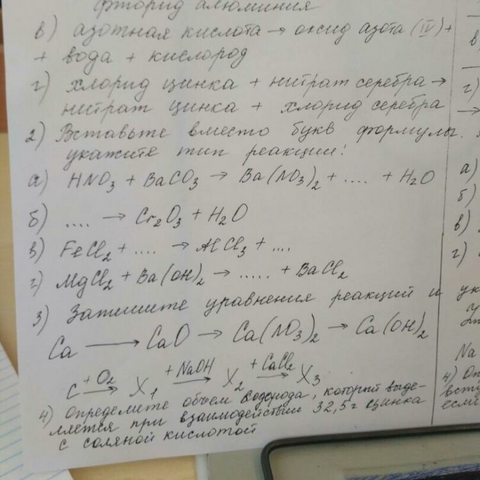 фторид алюминия
в) азотная кислота → оксид азота (IV) +
+ вода + кислород
г) хлорид цинка + нитрат серебра →
нитрат цинка + хлорид серебра
2) Вставьте вместо букв формулы.
укажите тип реакции:
а) HNO3 + BaCO3 → Ba(NO3)2 + .... + H2O
б) .... → Cr2O3 + H2O
в) FeCl2 + .... → AlCl3 + ....
г) MgCl2 + Ba(OH)2 → ..... + BaCl2
3) Запишите уравнения реакций и
Ca → CaO → Ca(NO3)2 → Ca(OH)2
C +O2→ X1 +NaOH→ X2 +CaCl2→ X3
4) Определите объем водорода, который выде-
ляется при взаимодействии 32,5 г цинка
с соляной кислотой
а)
б)
в)
г)
Na
4)
если